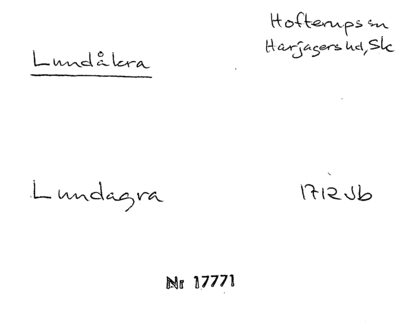 Hofterups sn
Lundåkra
Harjagers hd, Sk
Lundagra 1712 Jb
Nr 17771